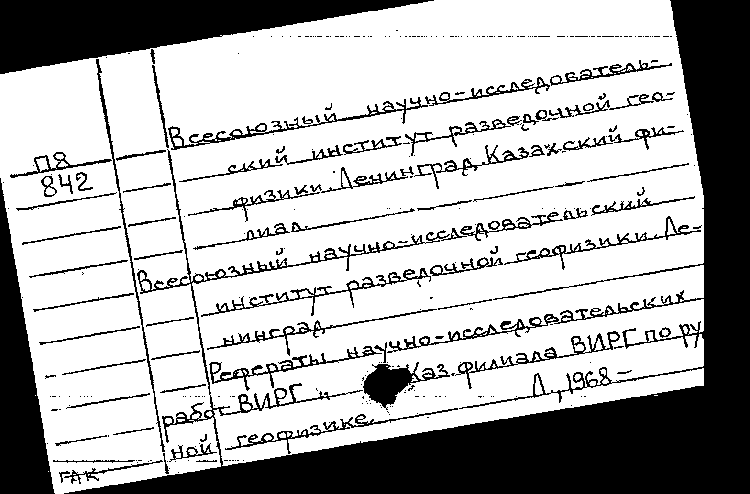 Всесоюзный научно-исследователь-
ский институт разведочной гео-
физики. Ленинград. Казахский фи-
лиал.
Всесоюзный научно-исследовательский
институт разведочной геофизики. Ле-
нинград.
Рефераты научно-исследовательских
работ ВИРГ и Каз. филиала ВИРГ по руд
ной геофизике.
Л., 1968 –
ПЯ
842
ГАК